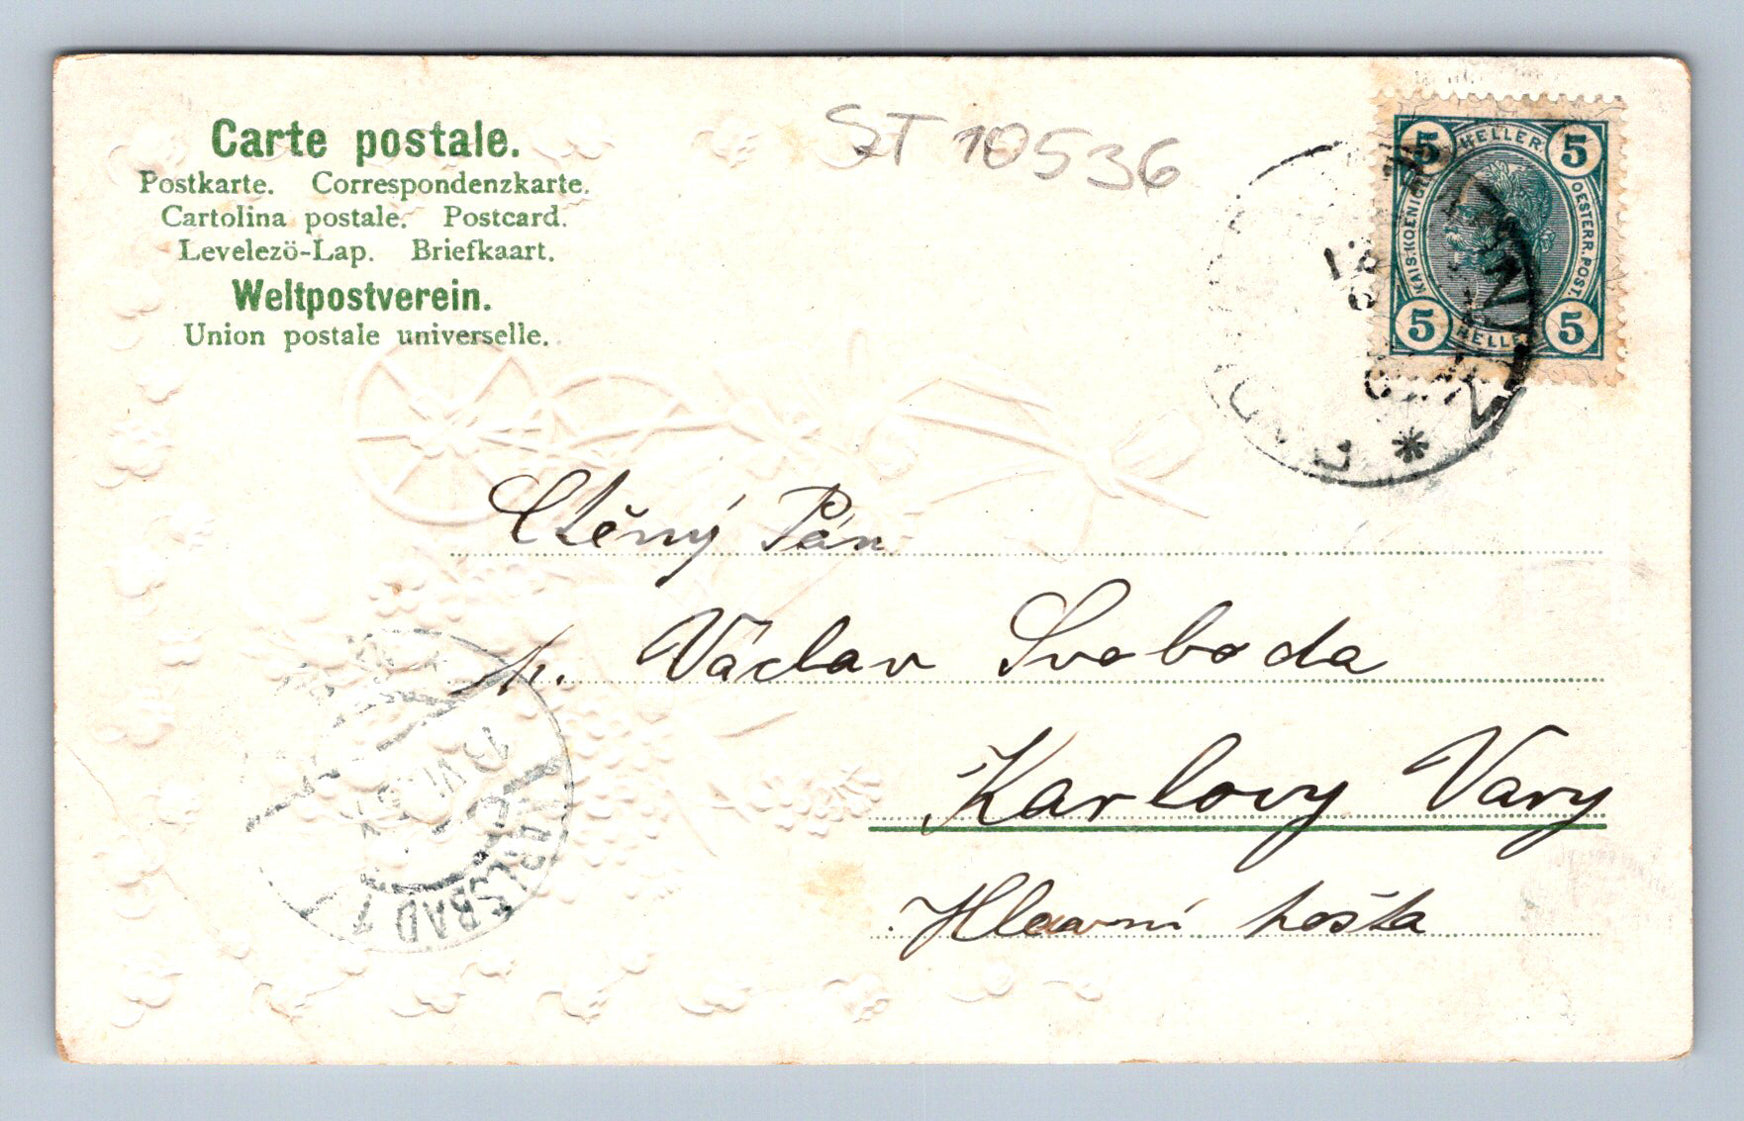 ST 10536
Carte postale.
Postkarte. Correspondenzkarte.
Cartolina postale. Postcard.
Levelezö-Lap. Briefkaart.
Weltpostverein.
Union postale universelle.
5 HELLER 5
KAIS. KOENIGL. OESTERR. POST.
5 HELLER 5
Ctěný Pán
p. Václav Svoboda
Karlovy Vary
Hlavní pošta
KARLSBAD 1